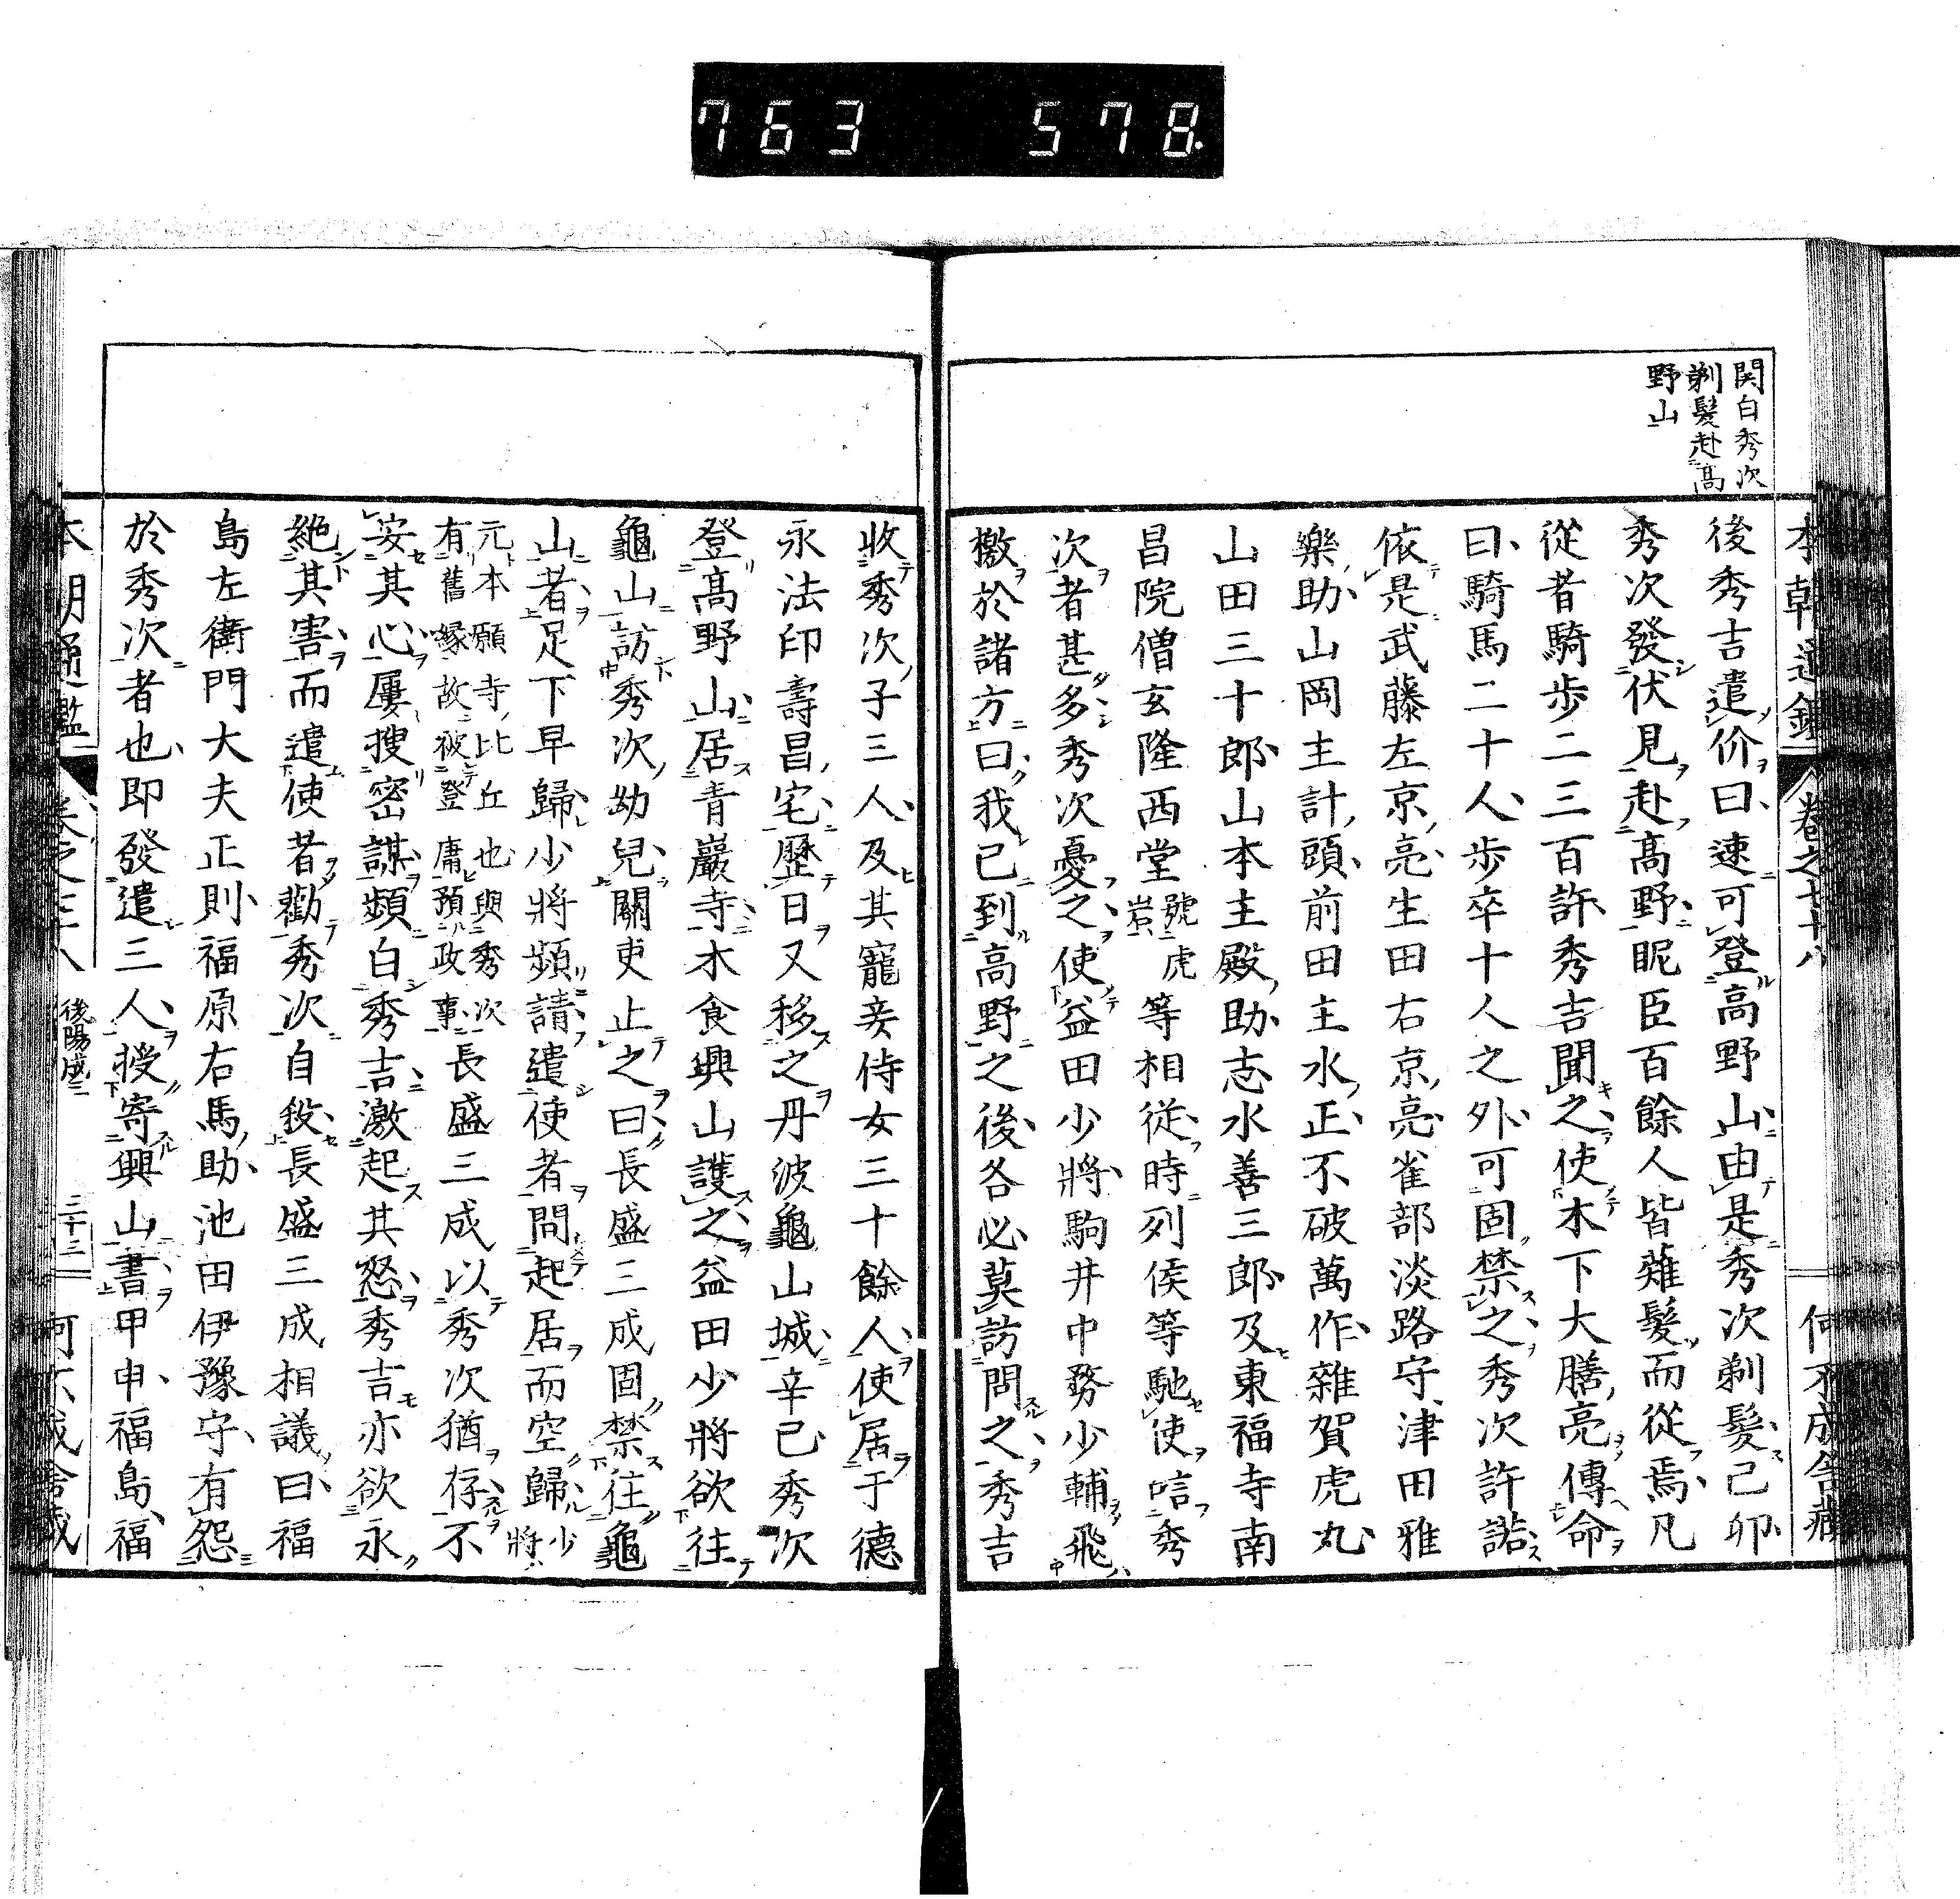 763 578.
関白秀次
剃髮赴高
野山
後秀吉遣价曰速可登高野山由是秀次剃髮己卯
秀次發伏見赴高野昵臣百餘人皆薙髮而從焉凡
從者騎歩二三百許秀吉聞之使木下大膳亮傳命
曰騎馬二十人歩卒十人之外可固禁之秀次許諾
依是武藤左京亮生田右京亮雀部淡路守津田雅
樂助山岡主計頭前田主水正不破萬作雜賀虎丸
山田三十郎山本主殿助志水善三郎及東福寺南
昌院僧玄隆西堂號虎岩等相從時列侯等馳使唁秀
次者甚多秀次憂之使益田少將駒井中務少輔飛
檄於諸方曰我已到高野之後各必莫訪問之秀吉
收秀次子三人及其寵妾侍女三十餘人使居于德
永法印壽昌宅歷日又移之丹波龜山城辛巳秀次
登高野山居青巖寺木食興山護之益田少將欲往
龜山訪秀次幼兒關吏止之曰長盛三成固禁往龜
山者足下早歸少將頻請遣使者問起居而空歸少將
元本願寺比丘也與秀次
有舊縁故被登庸預政事長盛三成以秀次猶存不
安其心屢搜密謀頻白秀吉激起其怒秀吉亦欲永
絶其害而遣使者勸秀次自殺長盛三成相議曰福
島左衛門大夫正則福原右馬助池田伊豫守有怨
於秀次者也即發遣三人授寄興山書甲申福島福
本朝通鑑
後陽成二
三十三